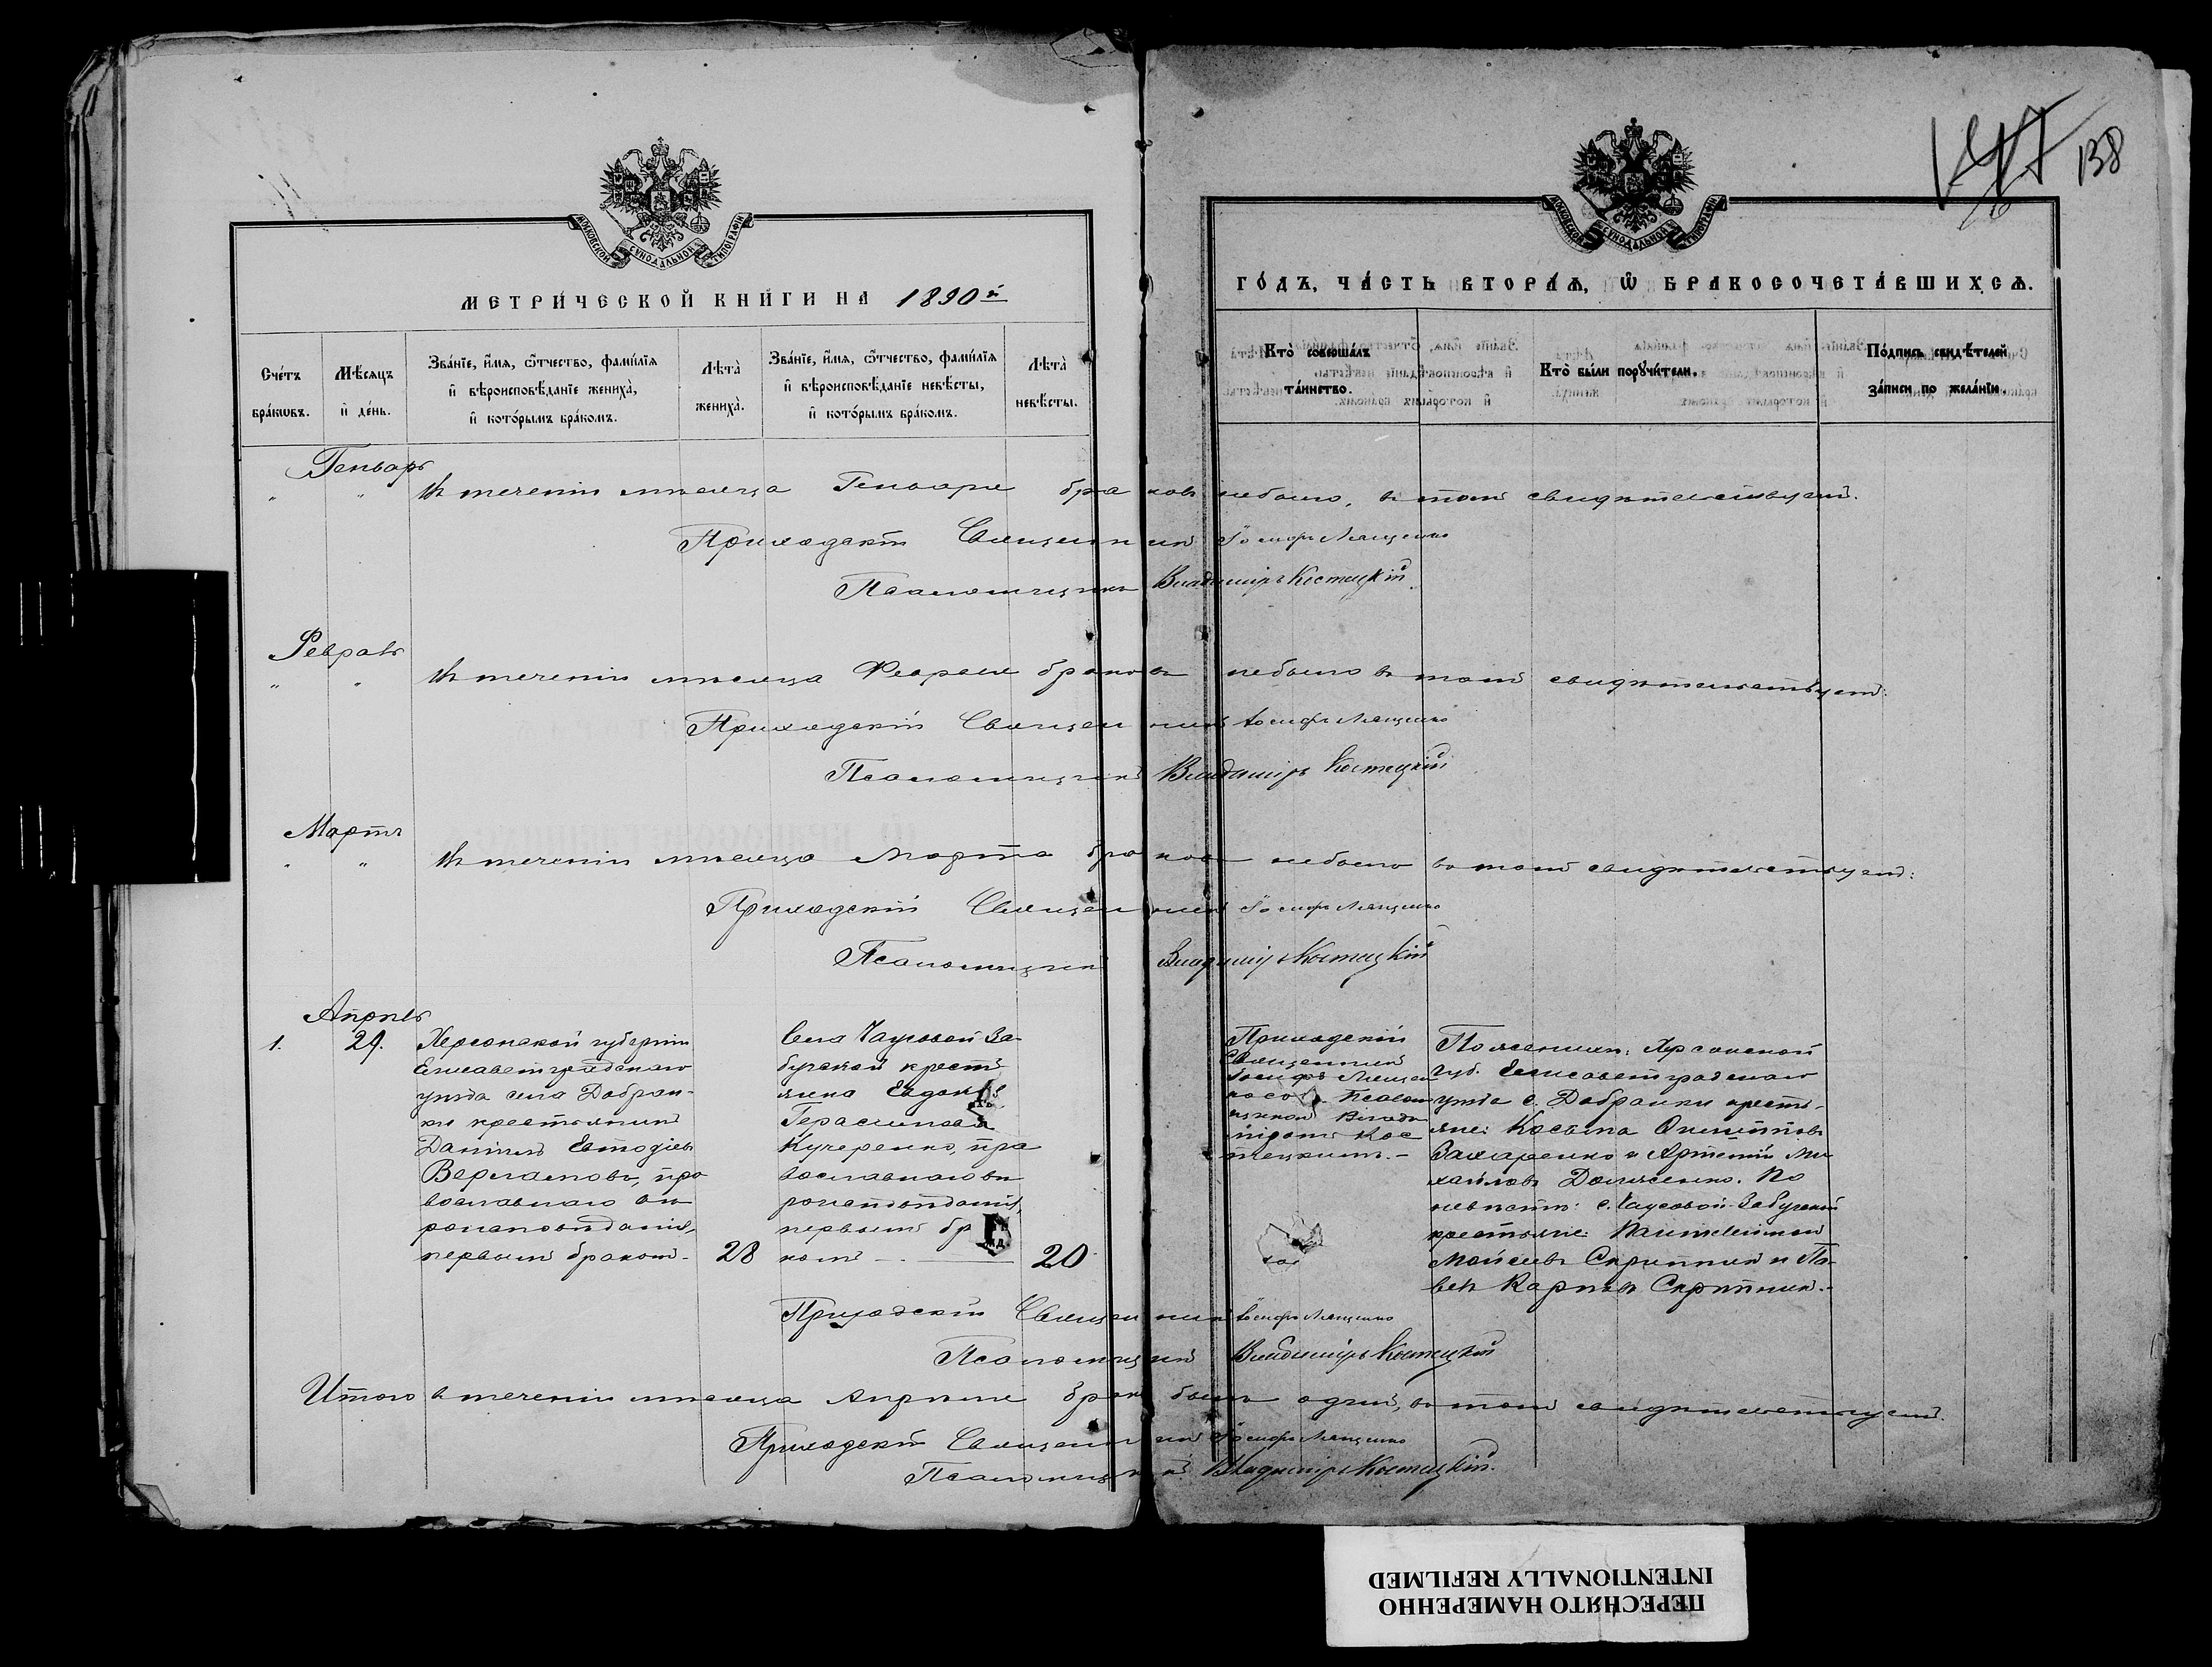 138
МОСКОВСКОЙ СѴНОДАЛЬНОЙ ТИПОГРАФІИ
МОСКОВСКОЙ СѴНОДАЛЬНОЙ ТИПОГРАФІИ
МЕТРИ́ЧЕСКОЙ КНИ́ГИ НА 1890й
ГО́ДЪ, ЧА́СТЬ ВТОРА́Ѧ, Ѽ БРАКОСОЧЕТА́ВШИХСѦ.
Сче́тъ бра́кѡвъ.
Мѣ́сѧцъ и҆ де́нь.
Зва́нїе, и҆́мѧ, ѻ҆́тчество, фами́лїѧ и҆ вѣроисповѣ́данїе жениха̀, и҆ кото́рымъ бра́комъ.
Лѣта̀ жениха̀.
Зва́нїе, и҆́мѧ, ѻ҆́тчество, фами́лїѧ и҆ вѣроисповѣ́данїе невѣ́сты, и҆ кото́рымъ бра́комъ.
Лѣта̀ невѣ́сты.
Кто̀ соверша́лъ та́инство.
Кто̀ бы́ли порꙋчи́тели.
По́дпись свидѣ́телей за́писи по жела́нїю.
Генварь
" " Въ теченіи мѣсяца Генваря браковъ небыло, въ томъ свидѣтельствуемъ.
Приходскій Священникъ Іосифъ Лященко
Псаломщикъ Владиміръ Костецкій
Февраль
" " Въ теченіи мѣсяца Февраля браковъ небыло въ томъ свидѣтельствуемъ:
Приходскій Священникъ Іосифъ Лященко
Псаломщикъ Владиміръ Костецкій
Мартъ
" " Въ теченіи мѣсяца Марта браковъ небыло въ томъ свидѣтельствуемъ:
Приходскій Священникъ Іосифъ Лященко
Псаломщикъ Владиміръ Костецкій
Апрѣль
1.
29.
Херсонской губерніи
Елисаветградскаго
уѣзда села Добрян-
ки крестьянинъ
Даніилъ
Варламовъ, пра
вославнаго вѣ
роисповѣданія,
первымъ бракомъ -
28
Села Чаусовой За-
бугской крестъ
янка
Герасимова
Кучеренко, пра
вославнаго вѣ
роисповѣданія,
первымъ бр
комъ -
20
Приходскій
Священникъ
Іосифъ Лящен
ко со Псалом
щикомъ Влади
міромъ Кос
тецкимъ. -
По женихѣ: Херсонской
губ. Елисаветградскаго
уѣзда с. Добрянки кресть-
яне: Косьма
Захаренко и Артемій Ми
хайловъ. По
невѣстѣ: с. Чаусовой-Забугской
крестьяне: Пантелеймонъ
Моисеевъ Скрипникъ и Па-
велъ Карповъ Скрипникъ. -
Приходскій Священникъ Іосифъ Лященко
Псаломщикъ Владиміръ Костецкій
Итого въ теченіи мѣсяца Апрѣля бракъ былъ одинъ, въ томъ свидѣтельствуемъ.
Приходскій Священникъ Іосифъ Лященко
Псаломщикъ Владиміръ Костецкій.
ПЕРЕСНЯТО НАМЕРЕННО
INTENTIONALLY REFILMED